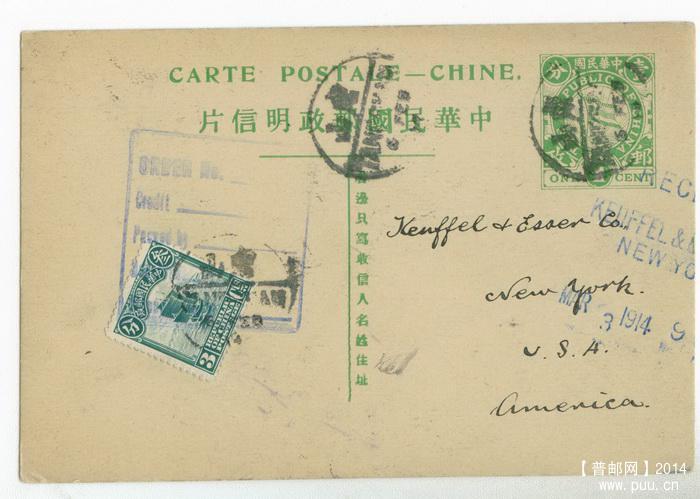 CARTE POSTALE—CHINE.
中華民國郵政明信片
中華民國
壹 分
REPUBLIC OF CHINA
郵 政
ONE CENT
邊只寫收信人名姓住址
ORDER No.
Credit
Passed by
叁 分
3
FEB
Keuffel & Esser Co.
New York.
U.S.A.
America.
KEUFFEL &
NEW YO
MAR 3 1914 9
【普邮网】2014
www.puu.cn